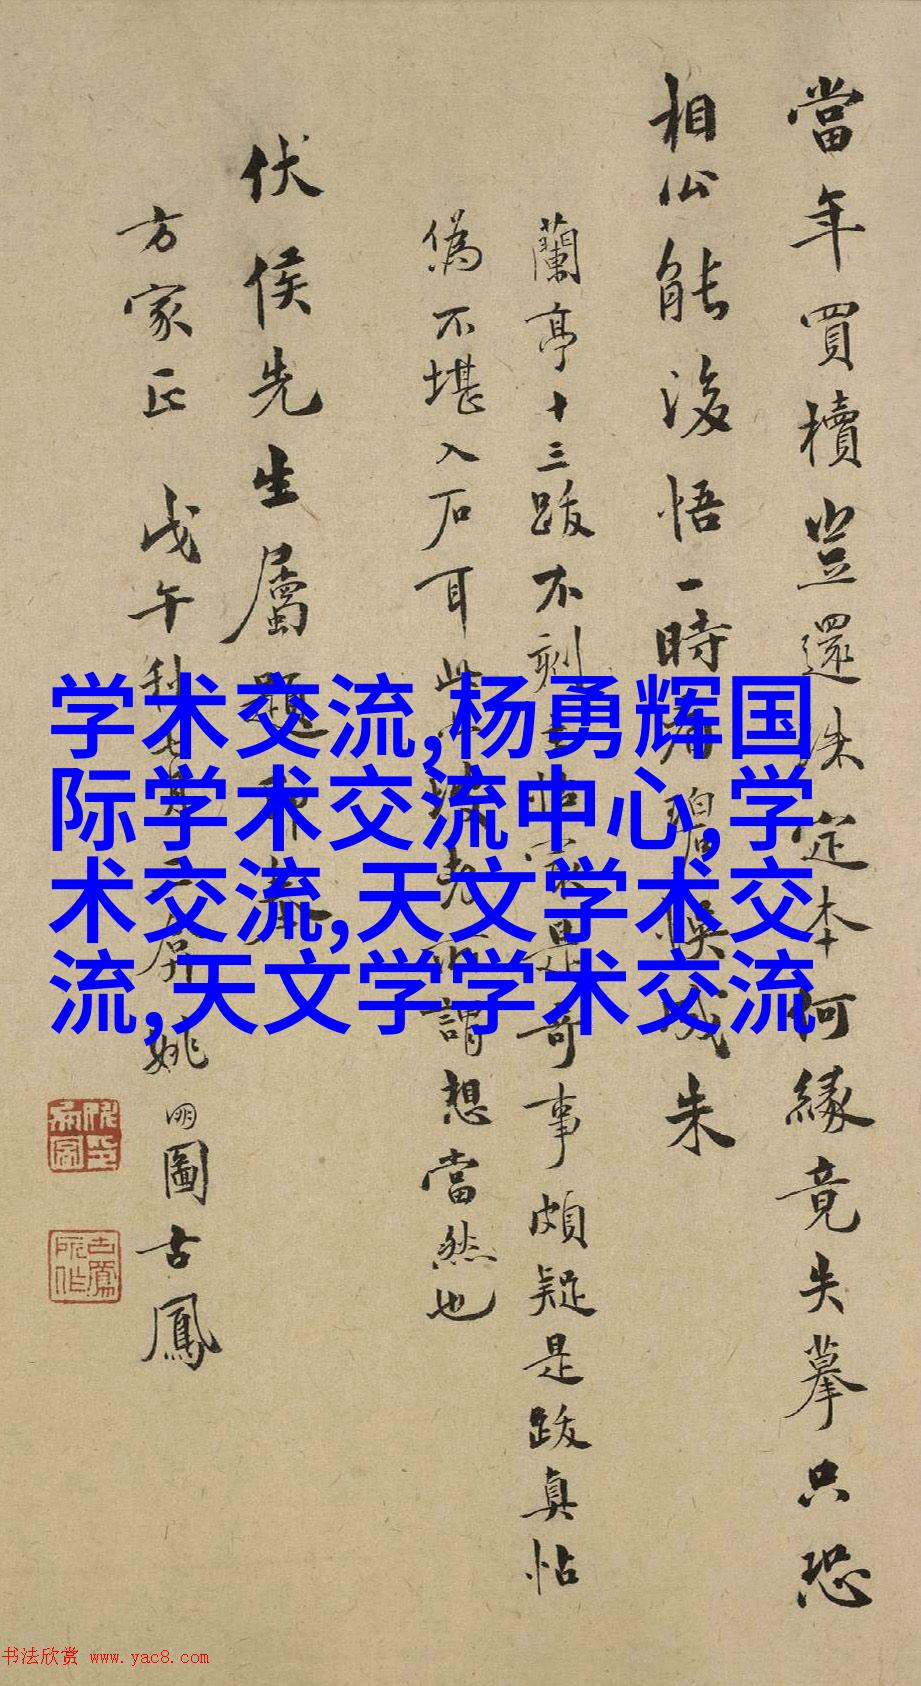 當年買櫝豈還珠定本何緣竟失摹只恐
相公能後悟一時看碧換成朱
蘭亭十三跋不刻是奇事頗疑是跋真帖
偽不堪入石耳此坡老所謂想當然也
伏侯先生屬題即奉
方家正 戊午秋七月 姚 圖古鳳
学术交流,杨勇辉国
际学术交流中心,学
术交流,天文学术交
流,天文学学术交流
书法欣赏 www.yac8.com